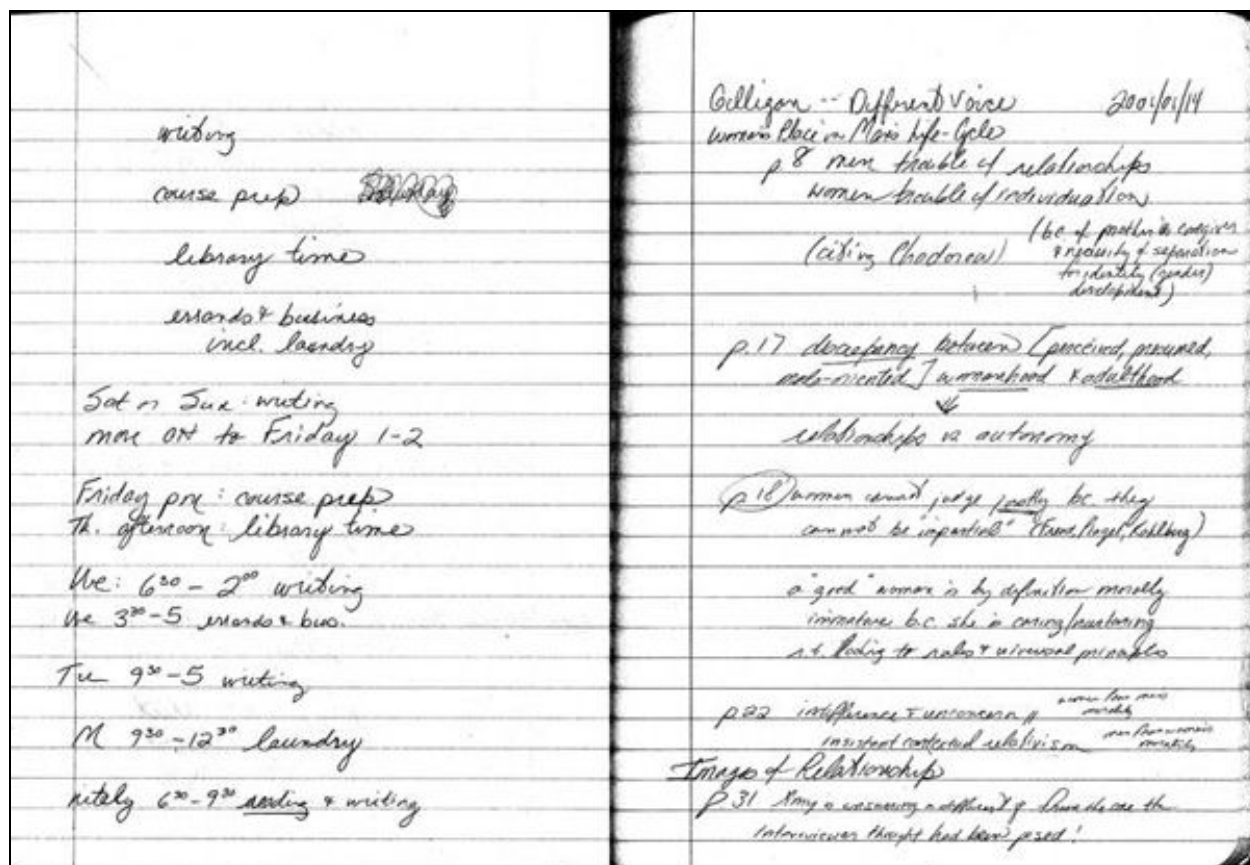 writing
course prep
library time
errands & business
incl. laundry
Sat or Sun: writing
move OH to Friday 1-2
Friday pm: course prep
Th. afternoon: library time
We: 6³⁰ - 2⁰⁰ writing
We 3³⁰ - 5 errands & bus.
Tu 9³⁰ - 5 writing
M 9³⁰ - 12³⁰ laundry
nitely 6³⁰ - 9³⁰ reading & writing
Gilligan -- Different Voice 2001/01/14
Woman's Place in Man's Life-Cycle
p 8 men trouble w/ relationships
women trouble w/ individuation
(citing Chodorow)
(bc of mother as caregiver
& necessity of separation
for identity (gender)
development)
p. 17 discrepancy between [perceived, presumed,
-oriented] womanhood & adulthood
relationships vs autonomy
p. 18 women cannot judge justly b.c. they
cannot be "impartial" (Freud, Piaget, Kohlberg)
a "good" woman is by definition morally
immature b.c. she is caring/nurturing
to rules & universal principles
p. 22 indifference & unconcern
women from men's
morality
insistent contextual relativism
men from women's
morality
Images of Relationship
p. 31 Amy is answering a different q. from the one the
interviewer thought had been posed!